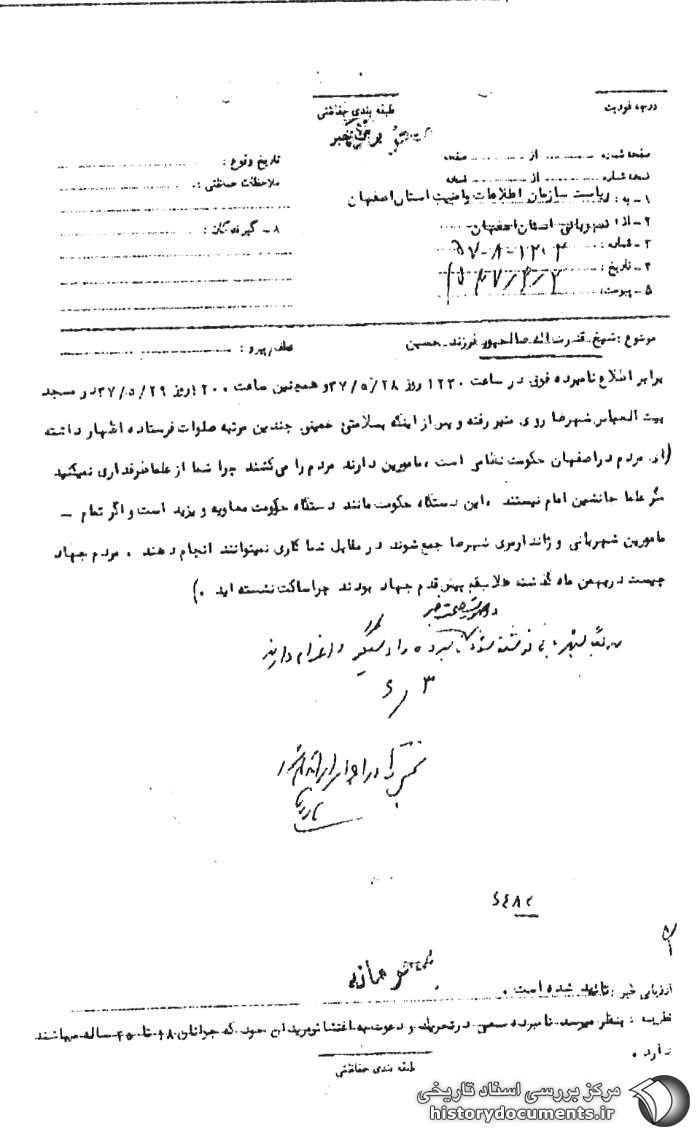 درجه فوریت
طبقه بندی حفاظتی
برگ خبر
صفحه شماره ........ از ........ صفحه
نسخه شماره ........ از ........ نسخه
۱ـ به : ریاست سازمان اطلاعات وامنیت استان اصفهان
۲ـ از : شهربانی استان اصفهان
۳ـ شماره :
۴ـ تاریخ :
۵ـ پیوست :
تاریخ وقوع :
ملاحظات حفاظتی :
۸ـ گیرندگان :
موضوع : شیخ قدرت اله صالحپور فرزند حسین
عطف/پیرو :
برابر اطلاع نامبرده فوق در ساعت ۱۲۳۰ روز ۳۷/۵/۲۸ و همچنین ساعت ۱۲۰۰ روز ۳۷/۵/۲۹ در مسجد
بیت العباس شهرضا روی منبر رفته و پس از اینکه بسلامتی خمینی چندین مرتبه صلوات فرستاده اظهار داشته
(ای مردم در اصفهان حکومت نظامی است ، مامورین دارند مردم را می کشند چرا شما از علما طرفداری نمیکنید
مگر علما جانشین امام نیستند ، این دستگاه حکومت مانند دستگاه حکومت معاویه و یزید است و اگر تمام ـ
مامورین شهربانی و ژاندارمری شهرضا جمع شوند در مقابل شما کاری نمیتوانند انجام دهند . مردم جهاد
چیست در بهمن ماه گذشته طلاب قم پیش قدم جهاد بودند چرا ساکت نشسته اید . )
در صورت صحت خبر
نوشته شود نامبرده را دستگیر و اعزام دارند
۶/۳
ارزیابی خبر : تائید شده است .
نظریه : بنظر میرسد نامبرده سعی در تحریک و دعوت به اغتشاش مریدان خود که جوانان ۱۸ تا ۲۵ ساله میباشند
دارد .
طبقه بندی حفاظتی
مرکز بررسی اسناد تاریخی
historydocuments.ir